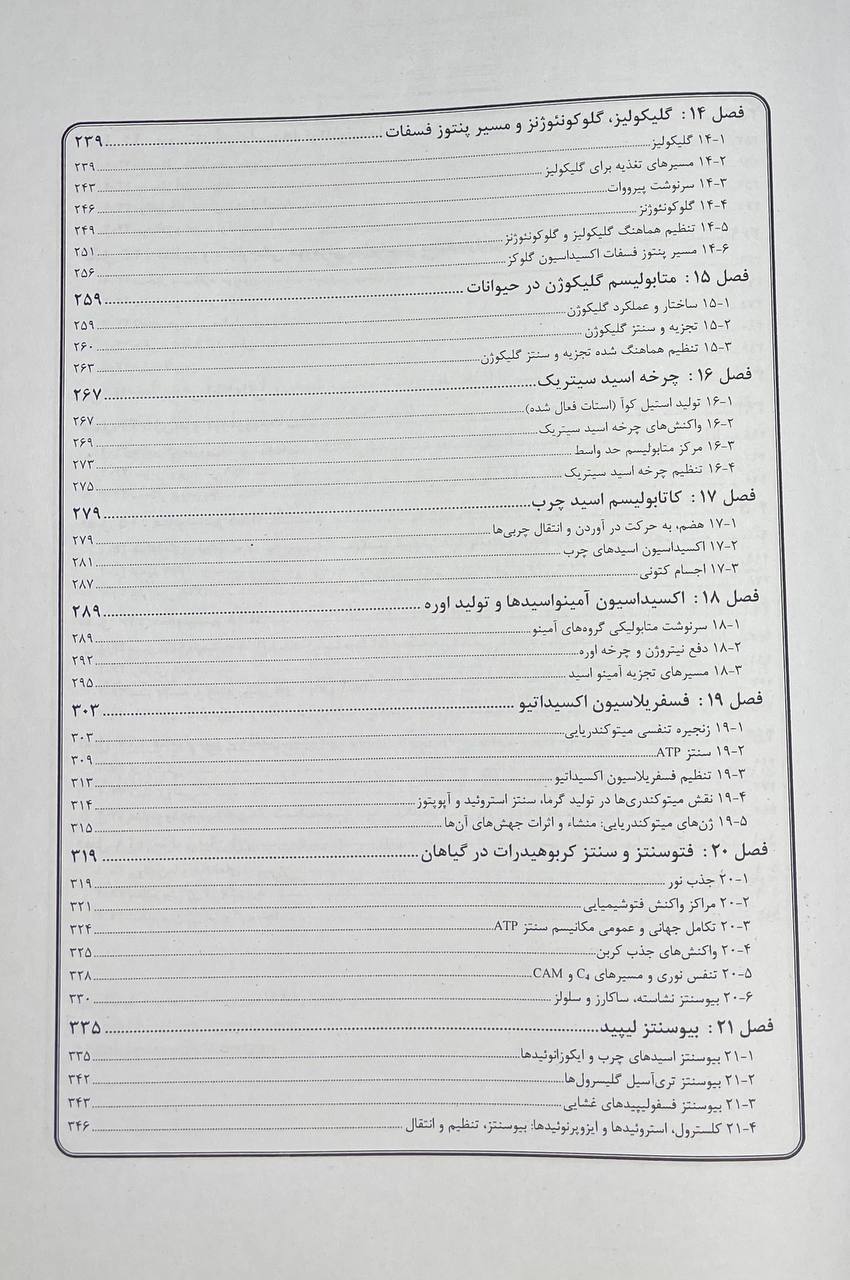 فصل ۱۴: گلیکولیز، گلوکونئوژنز و مسیر پنتوز فسفات ........ ۲۳۹
۱۴-۱ گلیکولیز ........ ۲۳۹
۱۴-۲ مسیرهای تغذیه برای گلیکولیز ........ ۲۴۳
۱۴-۳ سرنوشت پیرووات ........ ۲۴۶
۱۴-۴ گلوکونئوژنز ........ ۲۴۹
۱۴-۵ تنظیم هماهنگ گلیکولیز و گلوکونئوژنز ........ ۲۵۱
۱۴-۶ مسیر پنتوز فسفات اکسیداسیون گلوکز ........ ۲۵۶
فصل ۱۵: متابولیسم گلیکوژن در حیوانات ........ ۲۵۹
۱۵-۱ ساختار و عملکرد گلیکوژن ........ ۲۵۹
۱۵-۲ تجزیه و سنتز گلیکوژن ........ ۲۶۰
۱۵-۳ تنظیم هماهنگ شده تجزیه و سنتز گلیکوژن ........ ۲۶۳
فصل ۱۶: چرخه اسید سیتریک ........ ۲۶۷
۱۶-۱ تولید استیل کوآ (استات فعال شده) ........ ۲۶۷
۱۶-۲ واکنش‌های چرخه اسید سیتریک ........ ۲۶۹
۱۶-۳ مرکز متابولیسم حد واسط ........ ۲۷۳
۱۶-۴ تنظیم چرخه اسید سیتریک ........ ۲۷۵
فصل ۱۷: کاتابولیسم اسید چرب ........ ۲۷۹
۱۷-۱ هضم، به حرکت در آوردن و انتقال چربی‌ها ........ ۲۷۹
۱۷-۲ اکسیداسیون اسیدهای چرب ........ ۲۸۱
۱۷-۳ اجسام کتونی ........ ۲۸۷
فصل ۱۸: اکسیداسیون آمینواسیدها و تولید اوره ........ ۲۸۹
۱۸-۱ سرنوشت متابولیکی گروه‌های آمینو ........ ۲۸۹
۱۸-۲ دفع نیتروژن و چرخه اوره ........ ۲۹۲
۱۸-۳ مسیرهای تجزیه آمینو اسید ........ ۲۹۵
فصل ۱۹: فسفریلاسیون اکسیداتیو ........ ۳۰۳
۱۹-۱ زنجیره تنفسی میتوکندریایی ........ ۳۰۳
۱۹-۲ سنتز ATP ........ ۳۰۹
۱۹-۳ تنظیم فسفریلاسیون اکسیداتیو ........ ۳۱۳
۱۹-۴ نقش میتوکندری‌ها در تولید گرما، سنتز استروئید و آپوپتوز ........ ۳۱۴
۱۹-۵ ژن‌های میتوکندریایی: منشاء و اثرات جهش‌های آن‌ها ........ ۳۱۵
فصل ۲۰: فتوسنتز و سنتز کربوهیدرات در گیاهان ........ ۳۱۹
۲۰-۱ جذب نور ........ ۳۱۹
۲۰-۲ مراکز واکنش فتوشیمیایی ........ ۳۲۱
۲۰-۳ تکامل جهانی و عمومی مکانیسم سنتز ATP ........ ۳۲۴
۲۰-۴ واکنش‌های جذب کربن ........ ۳۲۵
۲۰-۵ تنفس نوری و مسیرهای C₄ و CAM ........ ۳۲۸
۲۰-۶ بیوسنتز نشاسته، ساکارز و سلولز ........ ۳۳۰
فصل ۲۱: بیوسنتز لیپید ........ ۳۳۵
۲۱-۱ بیوسنتز اسیدهای چرب و ایکوزانوئیدها ........ ۳۳۵
۲۱-۲ بیوسنتز تری‌آسیل گلیسرول‌ها ........ ۳۴۲
۲۱-۳ بیوسنتز فسفولیپیدهای غشایی ........ ۳۴۳
۲۱-۴ کلسترول، استروئیدها و ایزوپرنوئیدها: بیوسنتز، تنظیم و انتقال ........ ۳۴۶